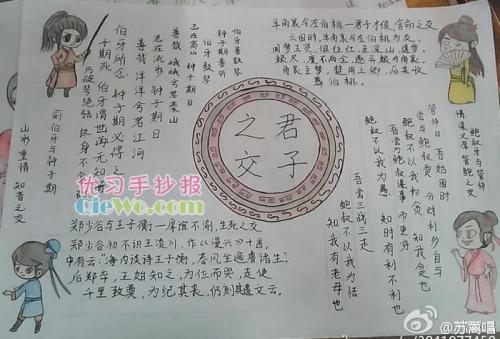 伯牙善鼓琴
钟子期善听
伯牙鼓琴
志在高山 钟子期曰
善哉 峨峨兮若泰山
志在流水 钟子期曰
善哉 洋洋兮若江河
伯牙所念 钟子期必得之
子期死 伯牙谓世再无知音
乃破琴绝弦 终身不复鼓
俞伯牙与钟子期
山水重情 知音之交
羊角哀与左伯桃—君子才俊,舍命之交
六国时,羊角哀与左伯桃为友。
闻楚王贤,俱往仕,至梁山,遇雪,
粮尽,度不两全,遂并粮与角哀。
角哀至楚,楚用上卿,后来收
葬伯桃。
君子
之交
鲍叔牙与管仲
情深义厚 管鲍之交
管仲曰 吾始困时
尝与鲍叔贾 分财利多自与
鲍叔不以我为贪 知我贫也
吾尝为鲍叔谋事 而更穷
鲍叔不以我为愚 知时有利不利也
吾尝三战三走
鲍叔不以我为怯
知我有老母也
优习手抄报
GieWo.com
郑少谷与王子衡—厚谊不渝,生死之交
郑少谷初不识王浚川,作《漫兴》十首,
中有云:"海内谈诗王子衡,春风坐遍鲁诸生。"
后郑卒,王始知之,为位而哭,走使
千里致奠,为纪其丧,仍刻其遗文云。
@苏漏唱